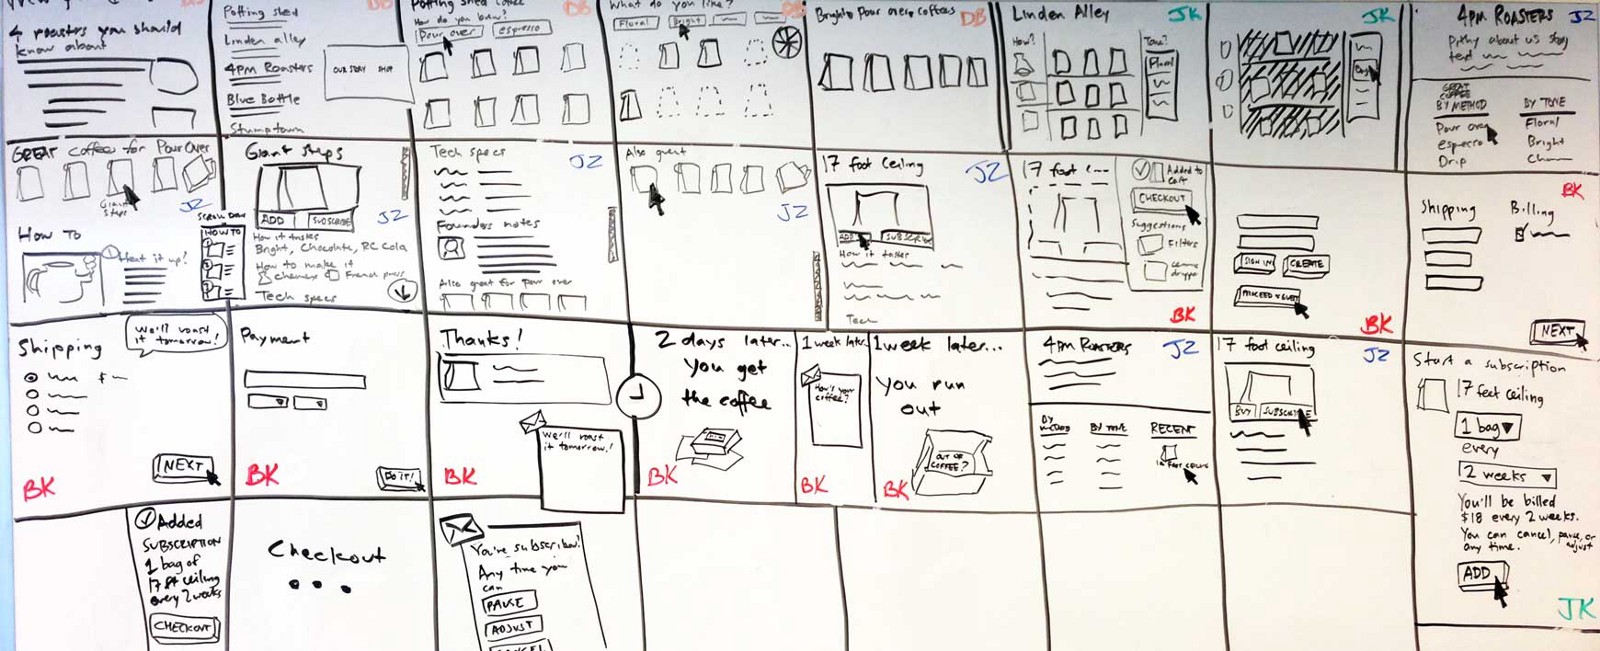 4 roasters you should
know about
DB
Potting shed
Linden alley
4PM Roasters
Blue Bottle
Stumptown
OUR STORY SHOP
DB
Potting shed coffee
How do you brew?
Pour over
espresso
DB
What do you like?
Floral
Bright
DB
Bright Pour over coffees
DB
Linden Alley
JK
How?
Tone?
Floral
JK
4PM ROASTERS
JZ
Pithy about us story
text
GREAT
COFFEE
BY METHOD
BY TONE
Pour over
Floral
espresso
Bright
Drip
GREAT coffee for Pour Over
Giant
steps
JZ
How To
Heat it up!
SCROLL DOWN
HOW TO
Giant Steps
ADD
SUBSCRIBE
JZ
How it tastes
Bright, Chocolate, RC Cola
How to make it
chemex
French press
Tech specs
Tech specs
JZ
Founders notes
Also great for pour over
Also great
JZ
17 foot ceiling
JZ
ADD
SUBSCRIBE
How it tastes
Tech
17 foot
Added to
cart
CHECKOUT
Suggestions
Filters
BK
SIGN IN
CREATE
PROCEED
BK
BK
Shipping
Billing
NEXT
Shipping
We'll roast
it tomorrow!
$
NEXT
BK
Payment
DO IT!
BK
Thanks!
We'll roast
it tomorrow!
BK
2 days later...
You get
the coffee
BK
1 week later
How's your
coffee?
BK
1 week later...
You run
out
OUT OF
COFFEE?
BK
4PM ROASTERS
JZ
BY
METHOD
BY TONE
RECENT
17 foot ceiling
JZ
BUY
SUBSCRIBE
Start a subscription
17 feet ceiling
1 bag
every
2 weeks
You'll be billed
$18 every 2 weeks.
You can cancel, pause, or
adjust
any time.
ADD
JK
Added
SUBSCRIPTION
1 bag of
17 ft ceiling
every 2 weeks
CHECKOUT
Checkout
...
You're subscribed!
Any time you
can
PAUSE
ADJUST
CANCEL